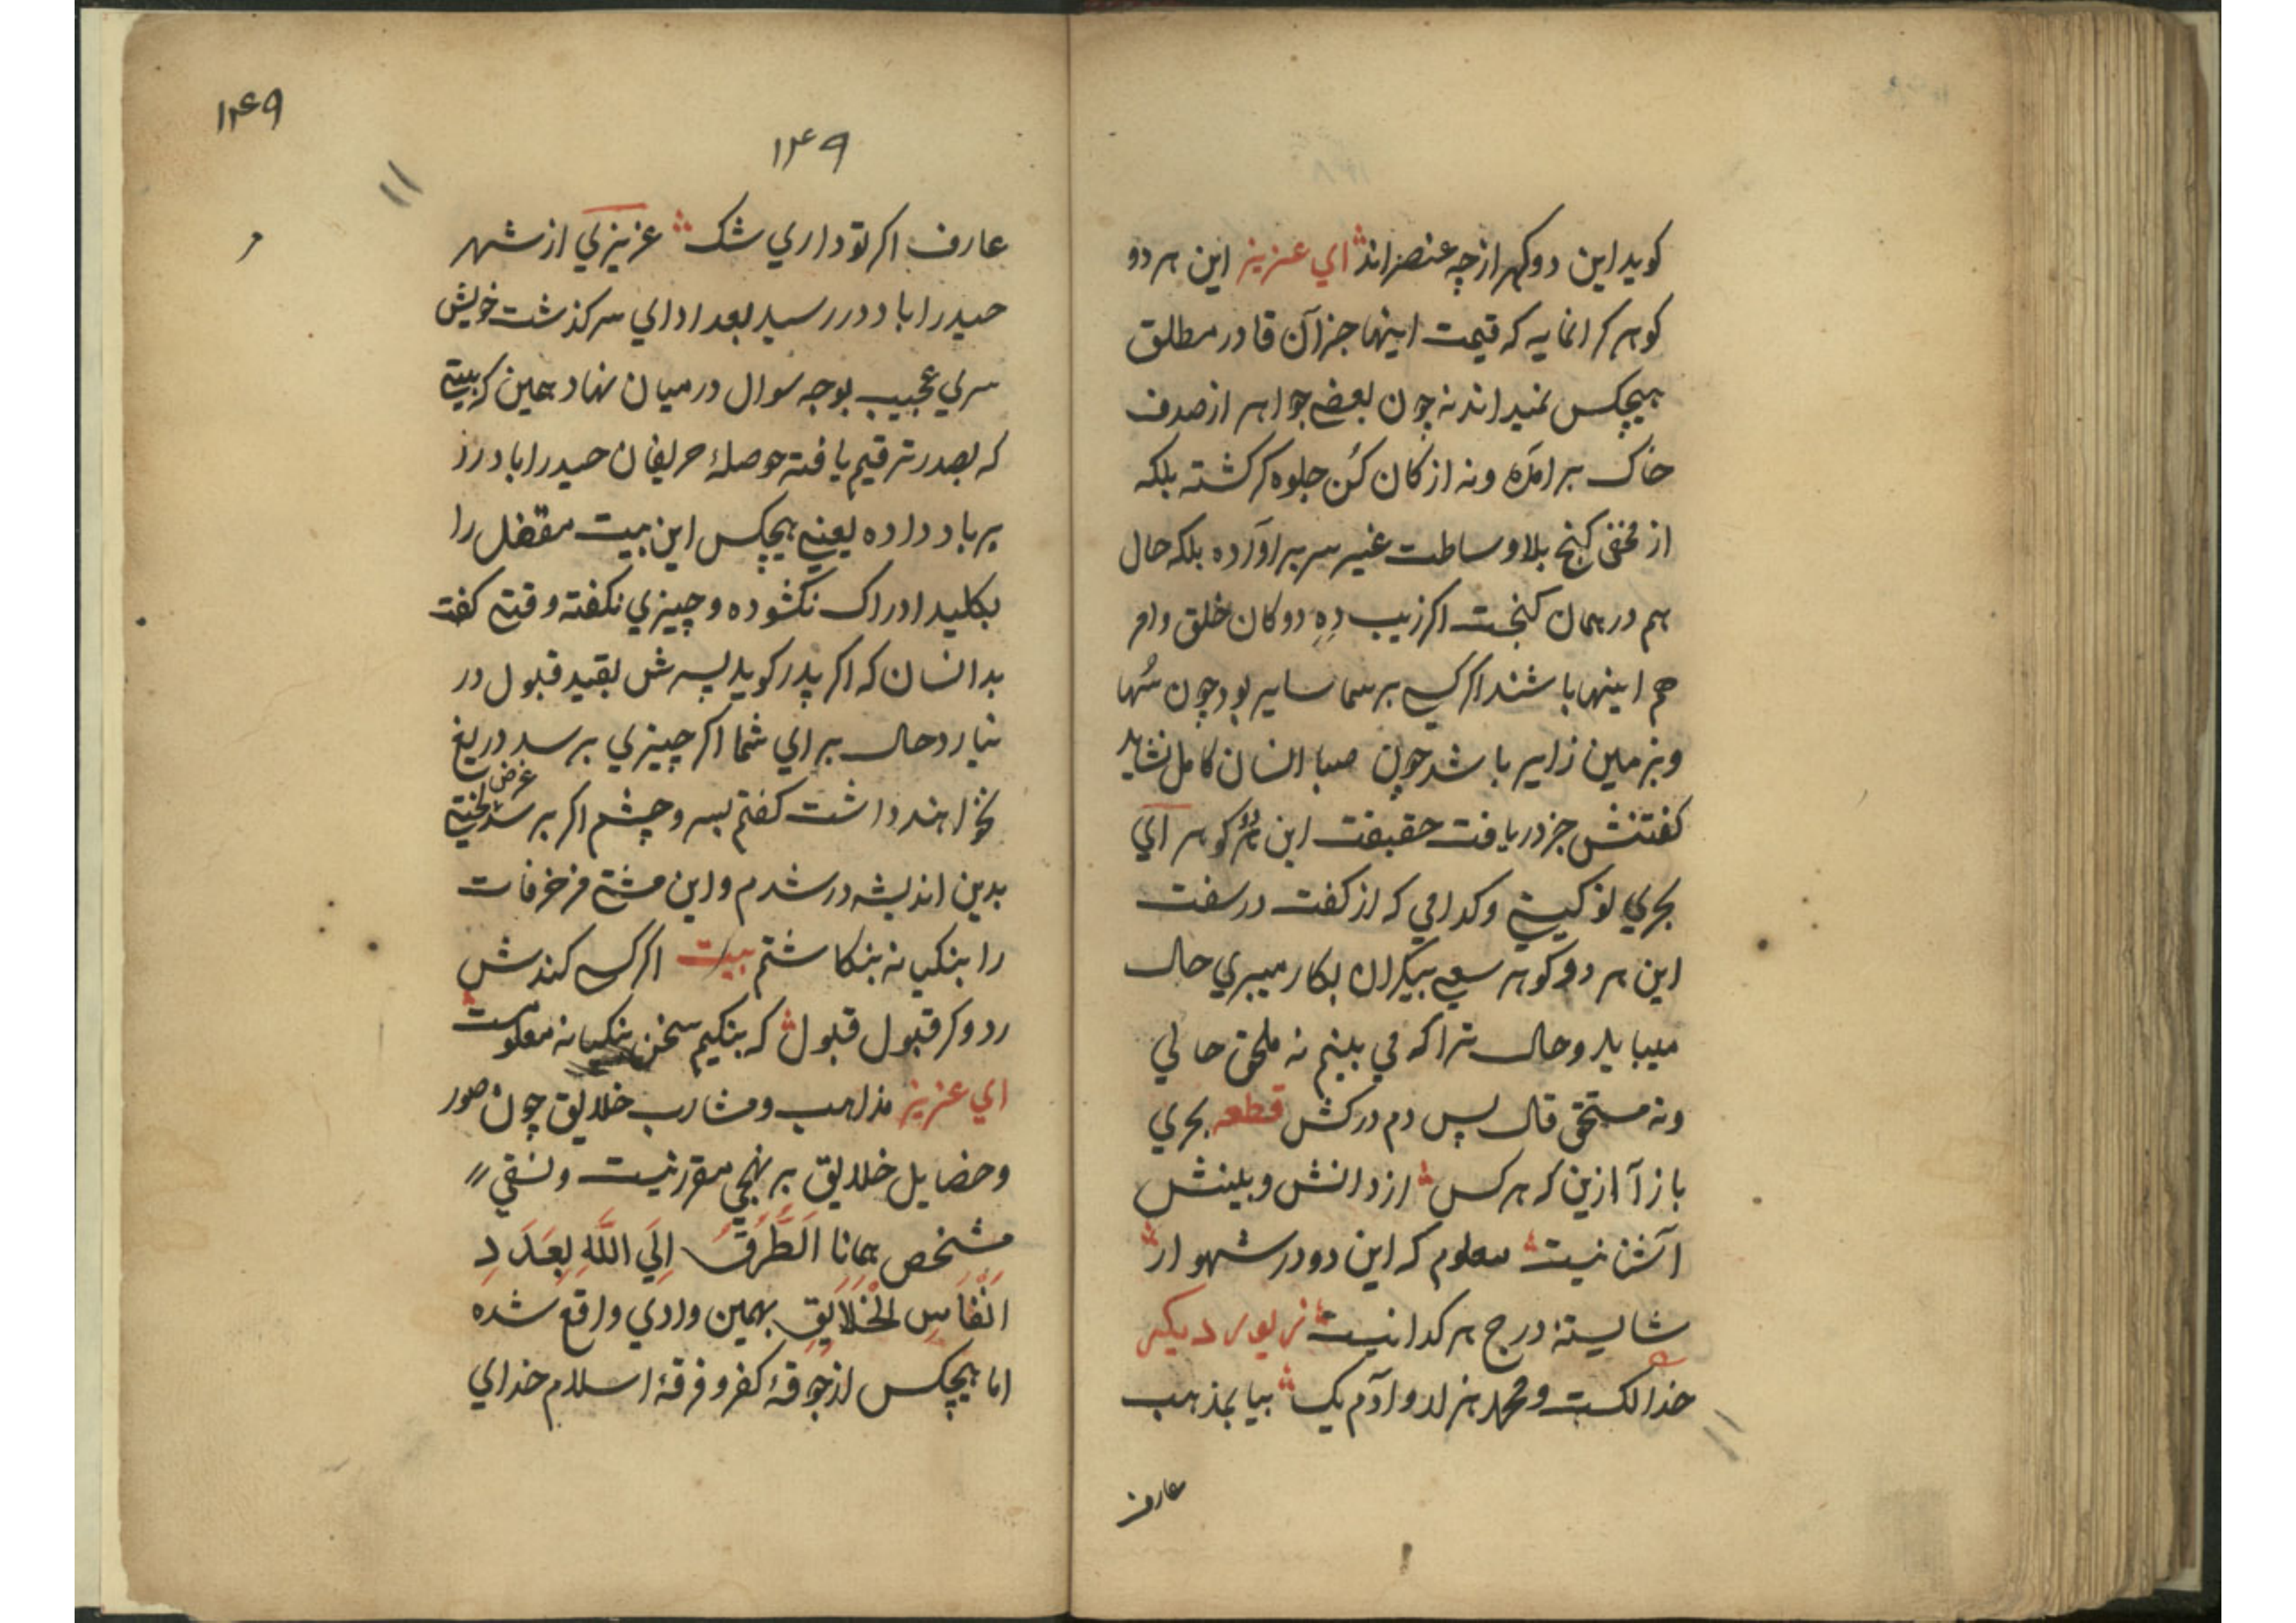 کوید این دو کهر از چه عنصر اند اي عزیز این هر دو
کوهر کرانمایه که قیمت اینها جز آن قادر مطلق
هیچکس نمیداند نه چون بعضے جواهر از صدف
خاک برامده و نه از کان کُن جلوه کر کشته بلکه
از مخفی کنج بلا وساطت غیر سر براورده بلکه حال
هم در همان کنجت اکر زیب دِهِ دوکان خلق و امر
هم اینها باشند اکر کسے برسما سایر بود چون سُها
و بزمین زایر باشد چون صبا انسان کامل نشاید
کفتنش جز دریافت حقیقت این هر دو کوهر اي
بحري تو کیستے و کدامي که از کفت در سفت
این هر دو کوهر سعے بیکران بکار میبري حال
میباید و حال ترا که مي بینم نه ملحق حالي
و نه مستحق قال پس دم درکش قطعه بحري
باز آ ازین که هر کس از دانش و بینش
آتش نیست معلوم که این دو در شهوار
شایستهٔ درج هر کدا نیست زیور دیکر
خدا یکست و محمد هزار و آدم یک بیا بمذهب
عارف
۱۴۹
۱۴۹
عارف اکر تو داري شک عزیزي از شهر
حیدراباد در رسید بعد اداي سرکذشت خویش
سري عجیب بوجه سوال درمیان نهاد همین که بیتے
که بصدر ترقیم یافته حوصلهٔ حریفان حیدراباد رز
برباد داده یعنے هیچکس این بیت مقفل را
بکلید ادراک نکشوده و چیزي نکفته وقتے کفت
بدانسان که اکر پدر کوید پسرش بقید قبول در
نیارد حال براي شما اکر چیزي برسد دریغ
نخواهند داشت کفتم بسر و چشم اکر برسد غرض لختے
بدین اندیشه در شدم و این مشتے مزخرفات
را بنکیانه بنکاشتم بیت اکر کسے کندش
رد و کر قبول قبول که بنکیم سخن بنکیانه معلومست
اي عزیز مذاهب و مشارب خلایق چون صور
و خصایل خلایق بر نهجي مقرر نیست و نسقي
مشخص همانا اَلطُّرُقُ اِلَي اللّٰهِ بِعَدَدِ
اَنْفَاسِ الْخَلَایِقِ بهمین وادي واقع شده
اما هیچکس از جوقهٔ کفر و فرقهٔ اسلام خداي